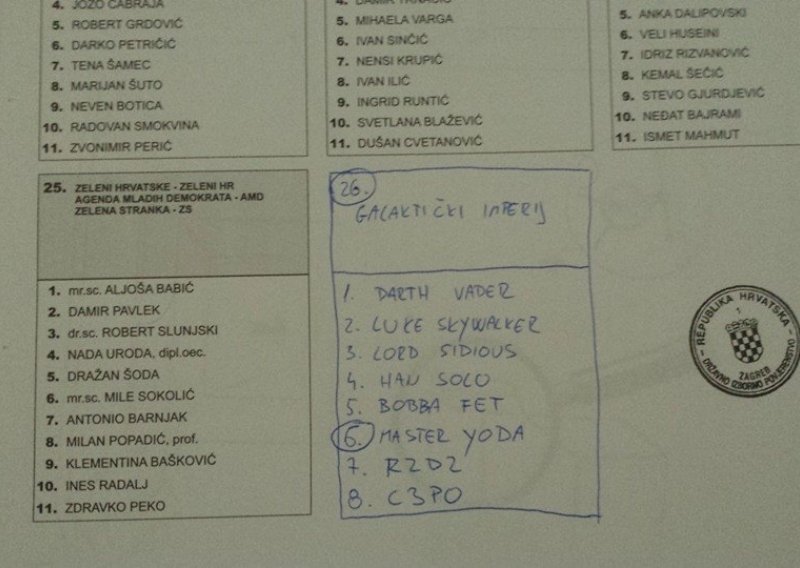 4. JOZO ČABRAJA
5. ROBERT GRDOVIĆ
6. DARKO PETRIČIĆ
7. TENA ŠAMEC
8. MARIJAN ŠUTO
9. NEVEN BOTICA
10. RADOVAN SMOKVINA
11. ZVONIMIR PERIĆ
5. MIHAELA VARGA
6. IVAN SINČIĆ
7. NENSI KRUPIĆ
8. IVAN ILIĆ
9. INGRID RUNTIĆ
10. SVETLANA BLAŽEVIĆ
11. DUŠAN CVETANOVIĆ
5. ANKA DALIPOVSKI
6. VELI HUSEINI
7. IDRIZ RIZVANOVIĆ
8. KEMAL ŠEČIĆ
9. STEVO GJURDJEVIĆ
10. NEĐAT BAJRAMI
11. ISMET MAHMUT
25. ZELENI HRVATSKE - ZELENI HR
AGENDA MLADIH DEMOKRATA - AMD
ZELENA STRANKA - ZS
1. mr.sc. ALJOŠA BABIĆ
2. DAMIR PAVLEK
3. dr.sc. ROBERT SLUNJSKI
4. NADA URODA, dipl.oec.
5. DRAŽAN ŠODA
6. mr.sc. MILE SOKOLIĆ
7. ANTONIO BARNJAK
8. MILAN POPADIĆ, prof.
9. KLEMENTINA BAŠKOVIĆ
10. INES RADALJ
11. ZDRAVKO PEKO
26.
GALAKTIČKI IMPERIJ
1. DARTH VADER
2. LUKE SKYWALKER
3. LORD SIDIOUS
4. HAN SOLO
5. BOBBA FET
6. MASTER YODA
7. R2D2
8. C3PO
REPUBLIKA HRVATSKA
1
ZAGREB
DRŽAVNO IZBORNO POVJERENSTVO